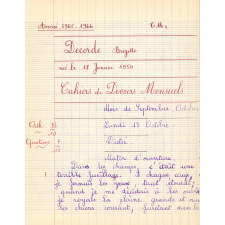 Année 1965-1966 C.M.2
Decorde Brigitte
née le 18 Janvier 1954
Cahiers de Devoirs Mensuels
Mois de Septembre Octobre
Lundi 18 Octobre
Orth
Questions Dictée
Matin d'ouverture
Dans les champs, c'était une
terrible fusillade. A chaque coup,
je fermais les yeux, tout étourdi;
quand je me décidais à les
je voyais la plaine grande et nue
les chiens courant,